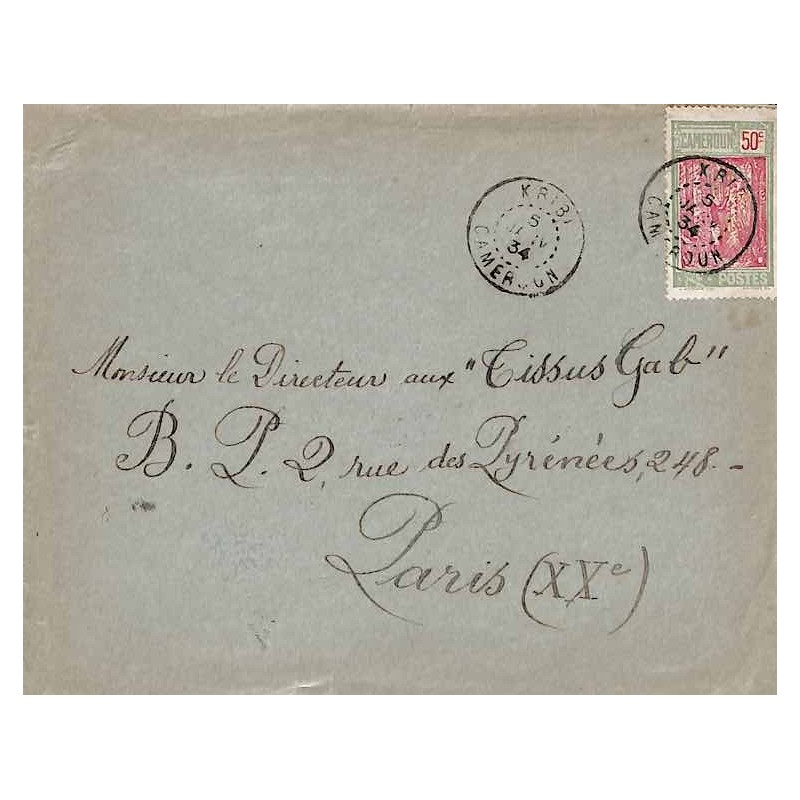 CAMEROUN 50c
POSTES
KRIBI
5
34
CAMEROUN
KRIBI
5
34
CAMEROUN
Monsieur le Directeur aux "Tissus Gab"
B. P. 2, rue des Pyrénées, 248. -
Paris (XXe)